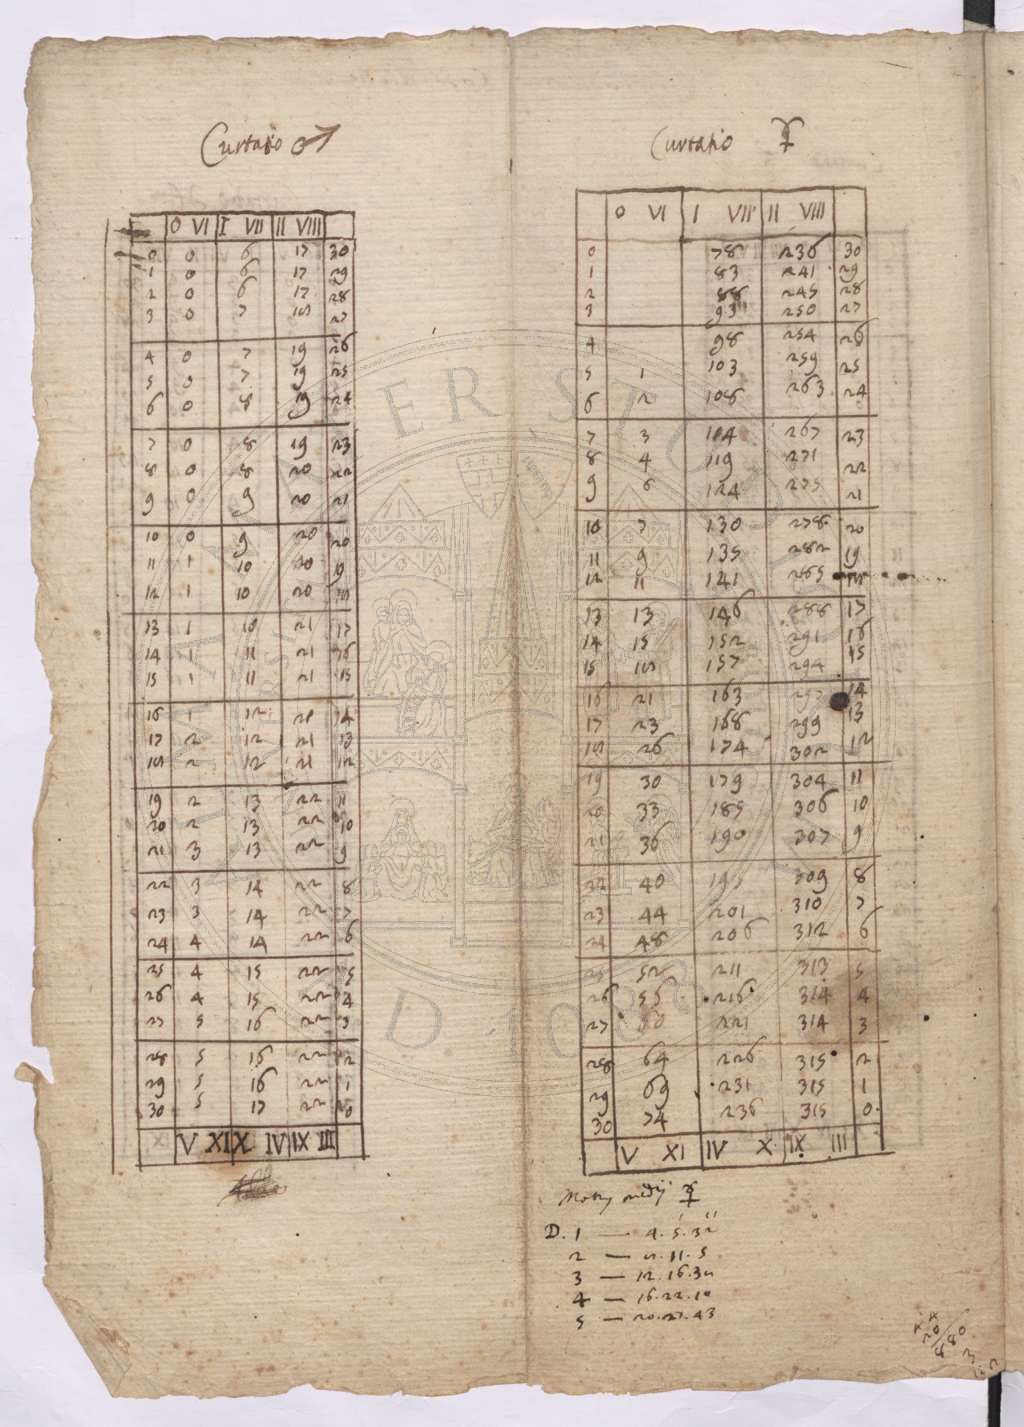 Curtatio ♂
0 VI I VII II VIII
0 0 6 17 30
1 0 6 17 29
2 0 6 17 28
3 0 7 18 27
4 0 7 19 26
5 0 7 19 25
6 0 8 19 24
7 0 8 19 23
8 0 8 20 22
9 0 9 20 21
10 0 9 20 20
11 1 10 20 19
12 1 10 20 18
13 1 10 21 17
14 1 11 21 16
15 1 11 21 15
16 1 12 21 14
17 2 12 21 13
18 2 12 21 12
19 2 13 22 11
20 2 13 22 10
21 3 13 22 9
22 3 14 22 8
23 3 14 22 7
24 4 14 22 6
25 4 15 22 5
26 4 15 22 4
27 5 16 22 3
28 5 16 22 2
29 5 16 22 1
30 5 17 22
V XI X IV IX III
Curtatio ☿
0 VI I VII II VIII
0 78 236 30
1 83 241 29
2 88 245 28
3 93 250 27
4 98 254 26
5 1 103 259 25
6 2 108 263 24
7 3 114 267 23
8 4 119 271 22
9 6 124 275 21
10 7 130 278 20
11 9 135 282 19
12 11 141 285
13 13 146 288 17
14 15 152 291 16
15 18 157 294 15
16 21 163 297 14
17 23 168 299 13
18 26 174 302 12
19 30 179 304 11
20 33 185 306 10
21 36 190 307 9
22 40 195 309 8
23 44 201 310 7
24 48 206 312 6
25 52 211 313 5
26 55 216 314 4
27 60 221 314 3
28 64 226 315 2
29 69 231 315 1
30 74 236 315 0
V XI IV X IX III
Motus medij ☿
D. 1 — 4. 5. 32
2 — 8. 11. 5
3 — 12. 16. 38
4 — 16. 22. 10
5 — 20. 27. 43